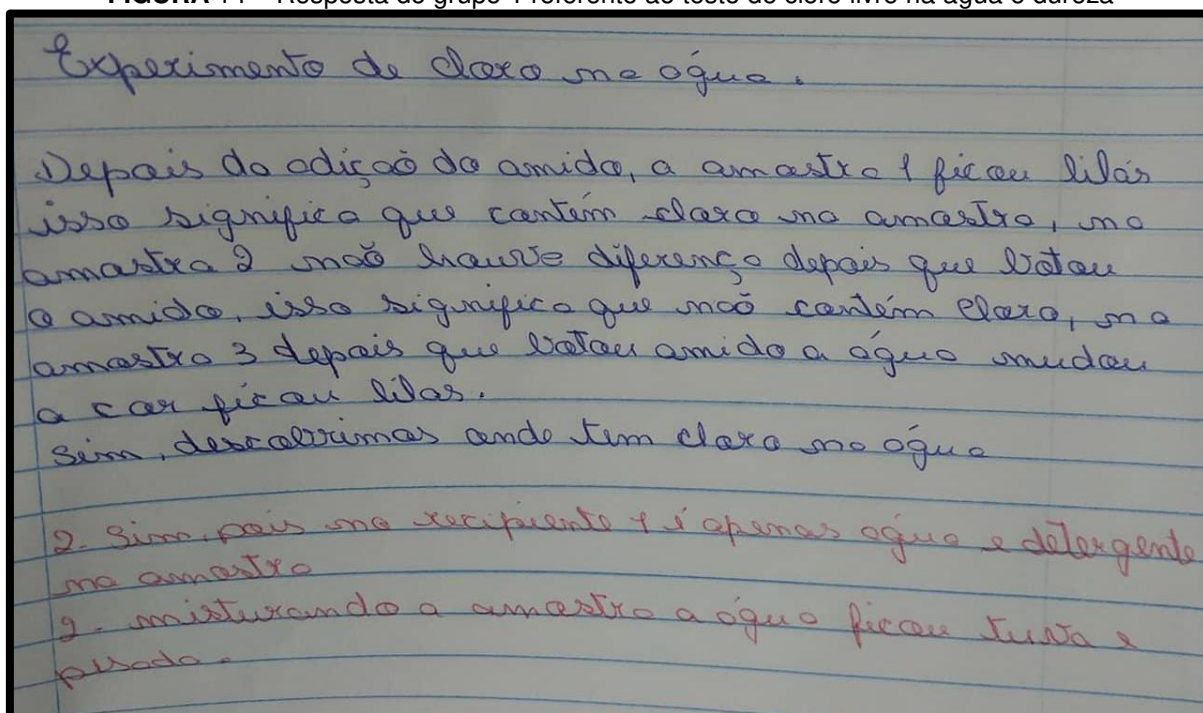 Experimento de cloro na água.
Depois da adição do amido, a amostra 1 ficou lilás
isso significa que contém cloro na amostra, na
amostra 2 não houve diferença depois que botou
o amido, isso significa que não contém cloro, na
amostra 3 depois que botou amido a água mudou
a cor ficou lilas.
Sim, descobrimos onde tem cloro na água
2- Sim, pois no recipiente 1 é apenas água e detergente
na amostra
2- misturando a amostra a água ficou turva e
pesada.